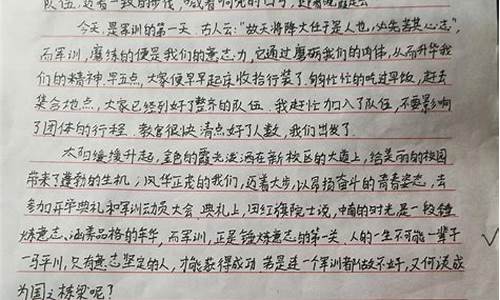 队伍，迈着一致的步伐，喊着响亮的口号，迎着晚霞走去
今天，是军训的第一天，古人云：“故天将降大任于是人也，必先苦其心志”，
而军训，磨练的便是我们的意志力，它通过磨砺我们的肉体，从而升华我
们的精神。早五点，大家便早早起床收拾行装了，匆匆忙忙的吃过早饭，赶去
集合地点，大家已经列好了整齐的队伍，我赶忙加入了队伍，不要影响
了团体的行程，教官很快清点好了人数，我们出发了。
太阳缓缓升起，金色的霞光洒满在新校区的大道上，给美丽的校园
带来了蓬勃的生机；风华正茂的我们，迈着大步，以昂扬奋斗的青春姿态，去
参加开学典礼和军训动员大会，典礼上，田红旗院士说，中南的时光是一段锤
炼意志、涵养品格的年华，而军训，正是锤炼意志的第一关，人的一生不可能一辈子
一马平川，只有意志坚定的人，才能获得成功，若是连一个军训都做不好，又何谈成
为国之栋梁呢？